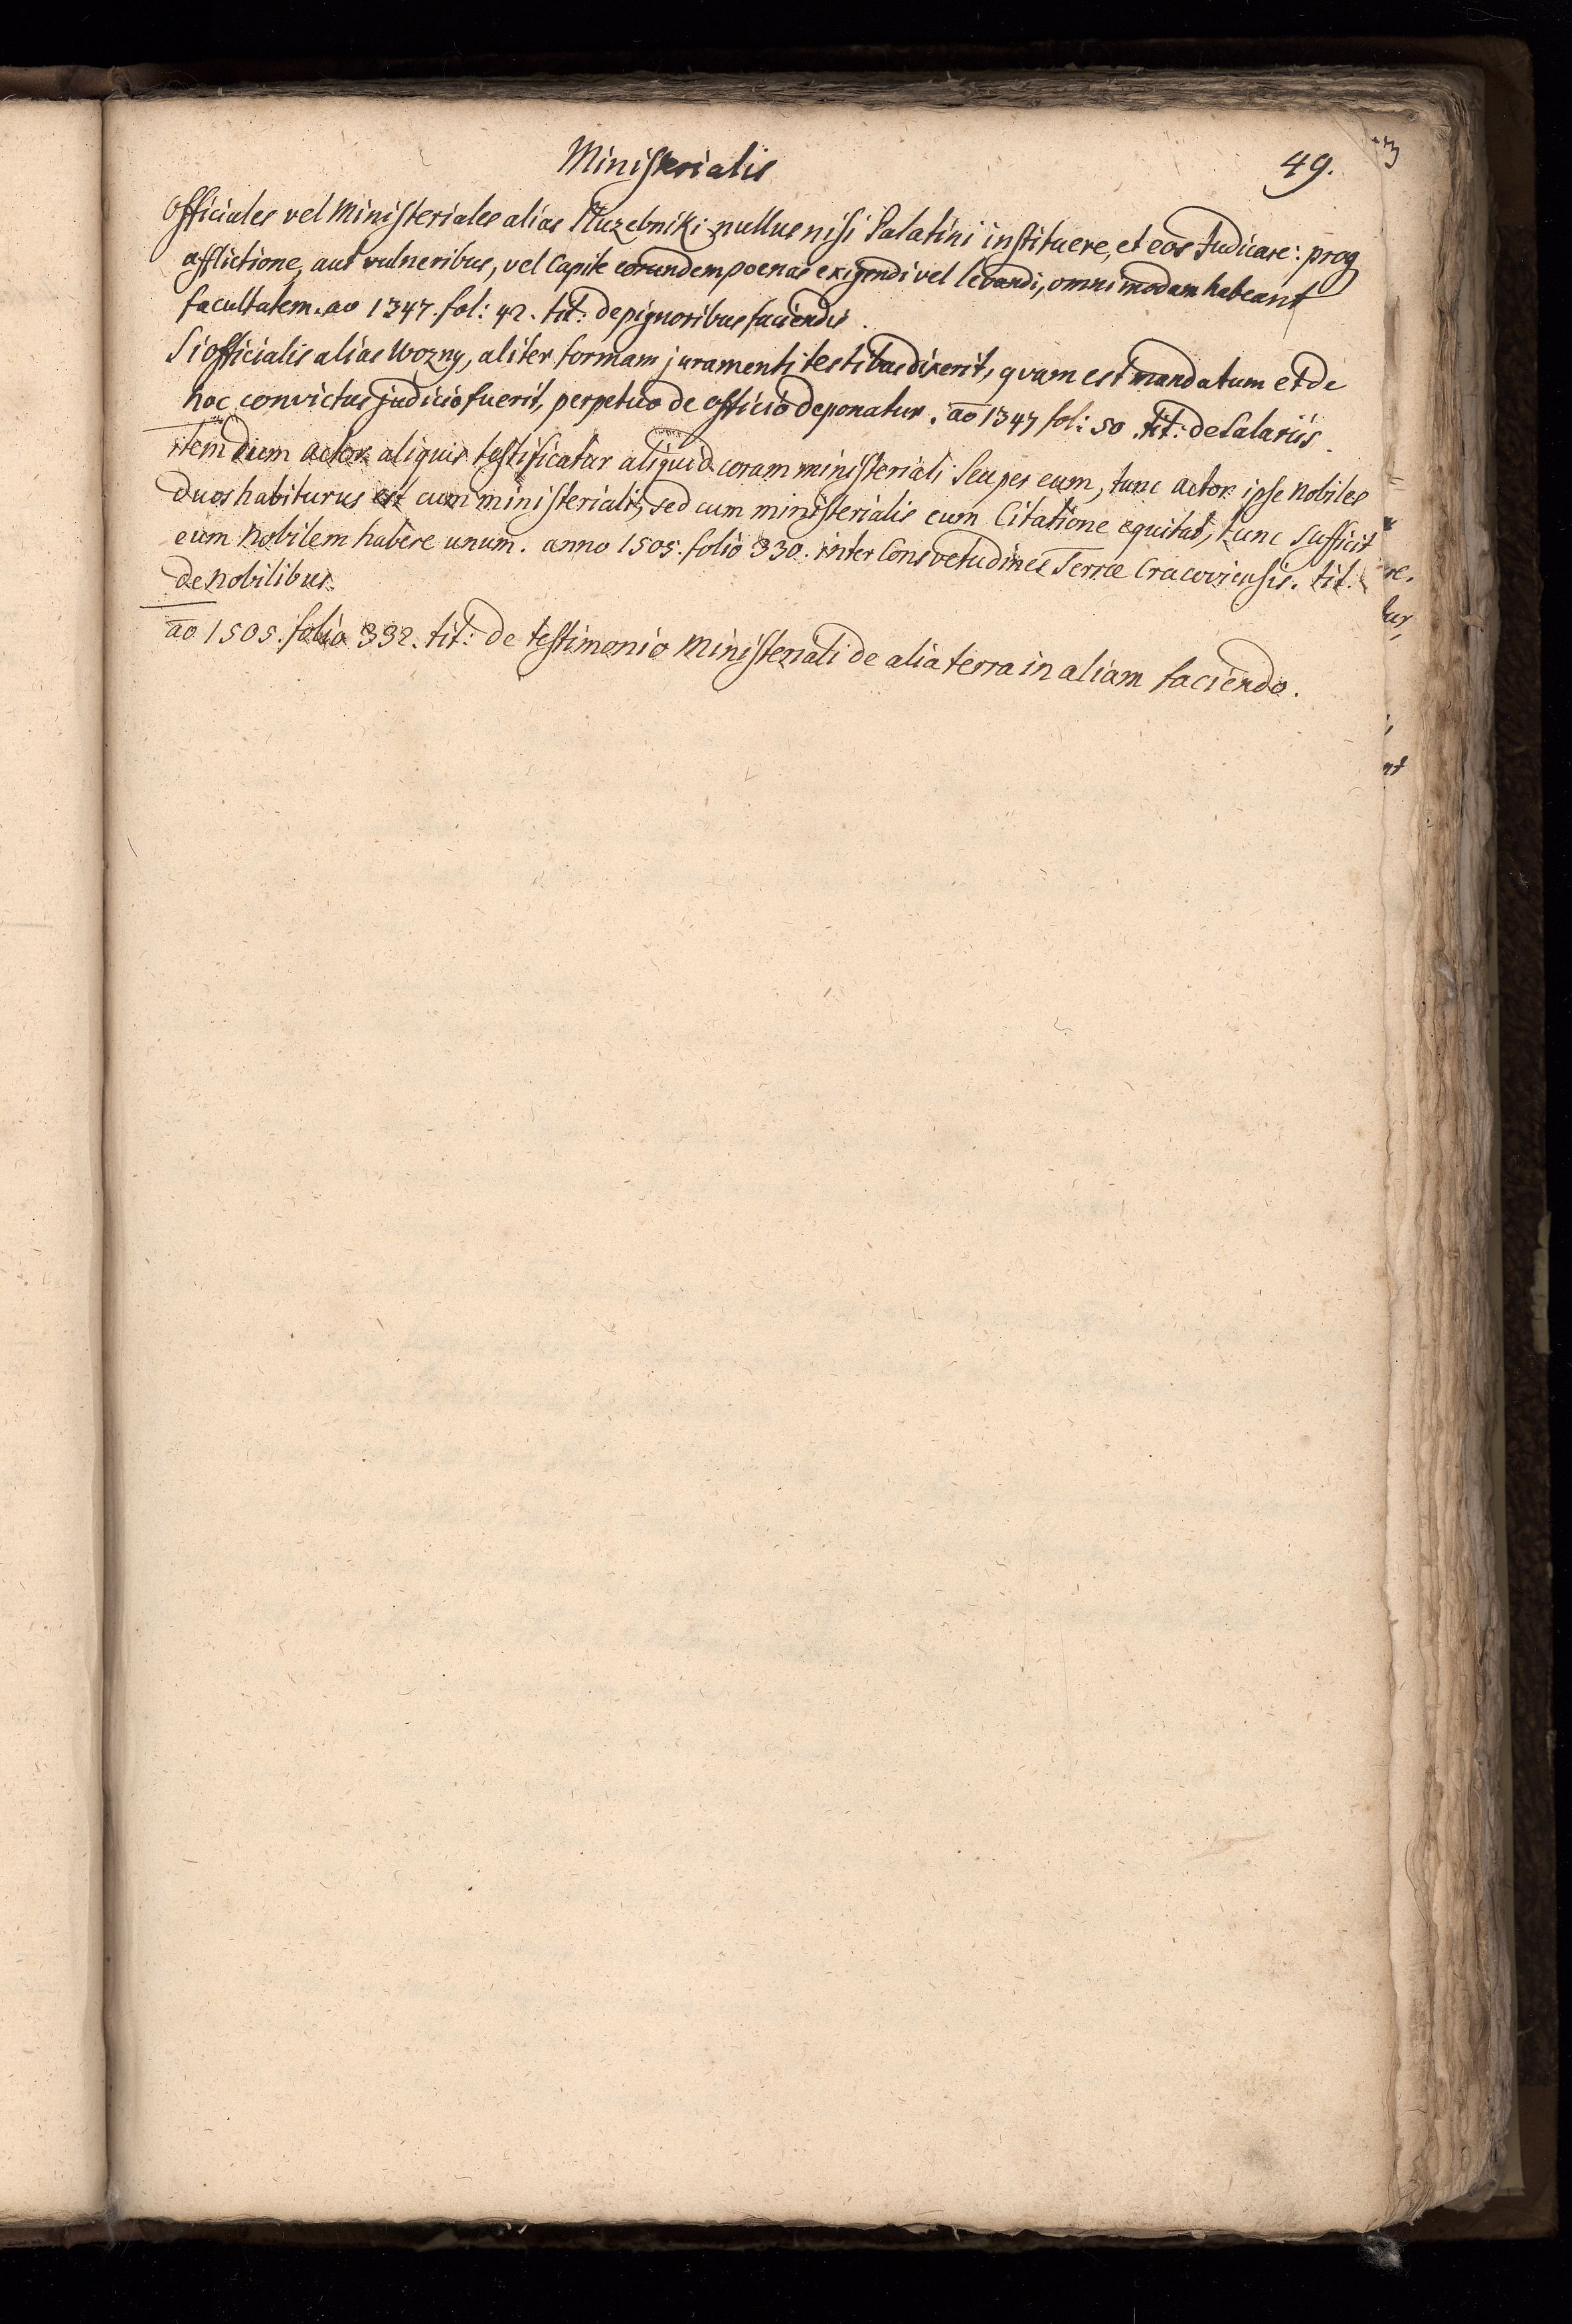 Ministerialis
49.
Officiales vel Ministeriales alias Sluzebniki nullus nisi Palatini instituere, et eos Judicare: prog
afflictione, aut vulneribus, vel Capite eorundem poenas exigendi vel levandi, omnimodam habeant
facultatem. ao 1347. fol: 42. tit: de pignoribus faciendis.
Si officialis alias Wozny, aliter formam juramenti testibus dixerit, qvam est mandatum et de
hoc convictus judicio fuerit, perpetuo de officio deponatur. ao 1347 fol: 50. tit: de Salariis.
Item dum actor aliquis testificatur aliquid coram ministeriali seu per eum, tunc actor ipse nobiles
duos habiturus est cum ministeriali, sed cum ministerialis cum Citatione equitat, tunc sufficit
eum Nobilem habere unum. anno 1505. folio 330. inter Consvetudines Terræ Cracoviensis. tit.
de Nobilibus.
ao 1505. folio 332. tit: de testimonio Ministeriali de alia terra in aliam faciendo.